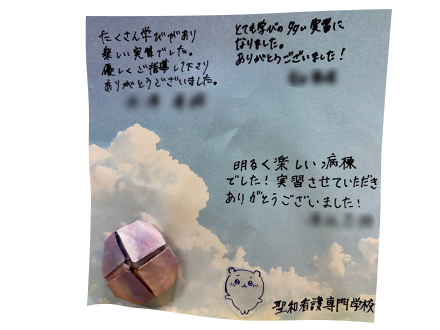 たくさん学びがあり
楽しい実習でした。
優しくご指導して下さり
ありがとうございました。
とても学びの多い実習に
なりました。
ありがとうございました!
明るく楽しい病棟
でした!実習させていただき
ありがとうございました!
聖和看護専門学校